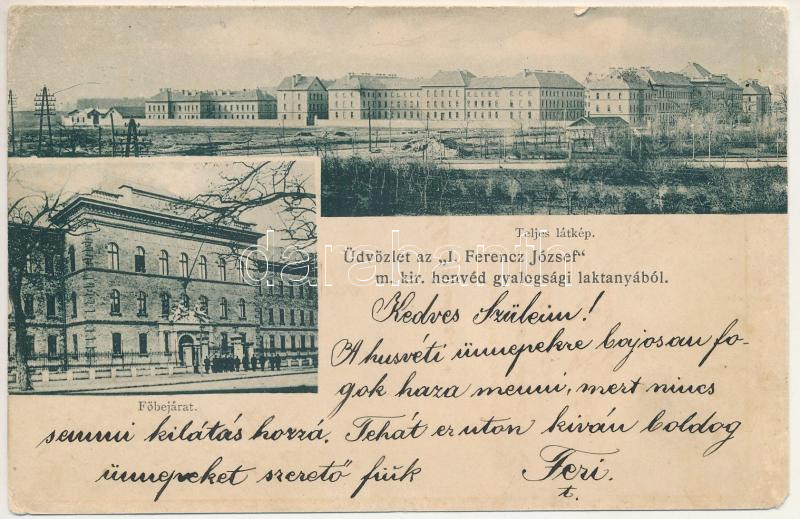 Teljes látkép.
Üdvözlet az „I. Ferencz József“
m. kir. honvéd gyalogsági laktanyából.
Főbejárat.
Kedves Szüleim!
A husvéti ünnepekre bajosan fo-
gok haza menni, mert nincs
semmi kilátás hozzá. Tehát ez uton kiván boldog
ünnepeket szerető fiúk Feri.
t.
darabanth